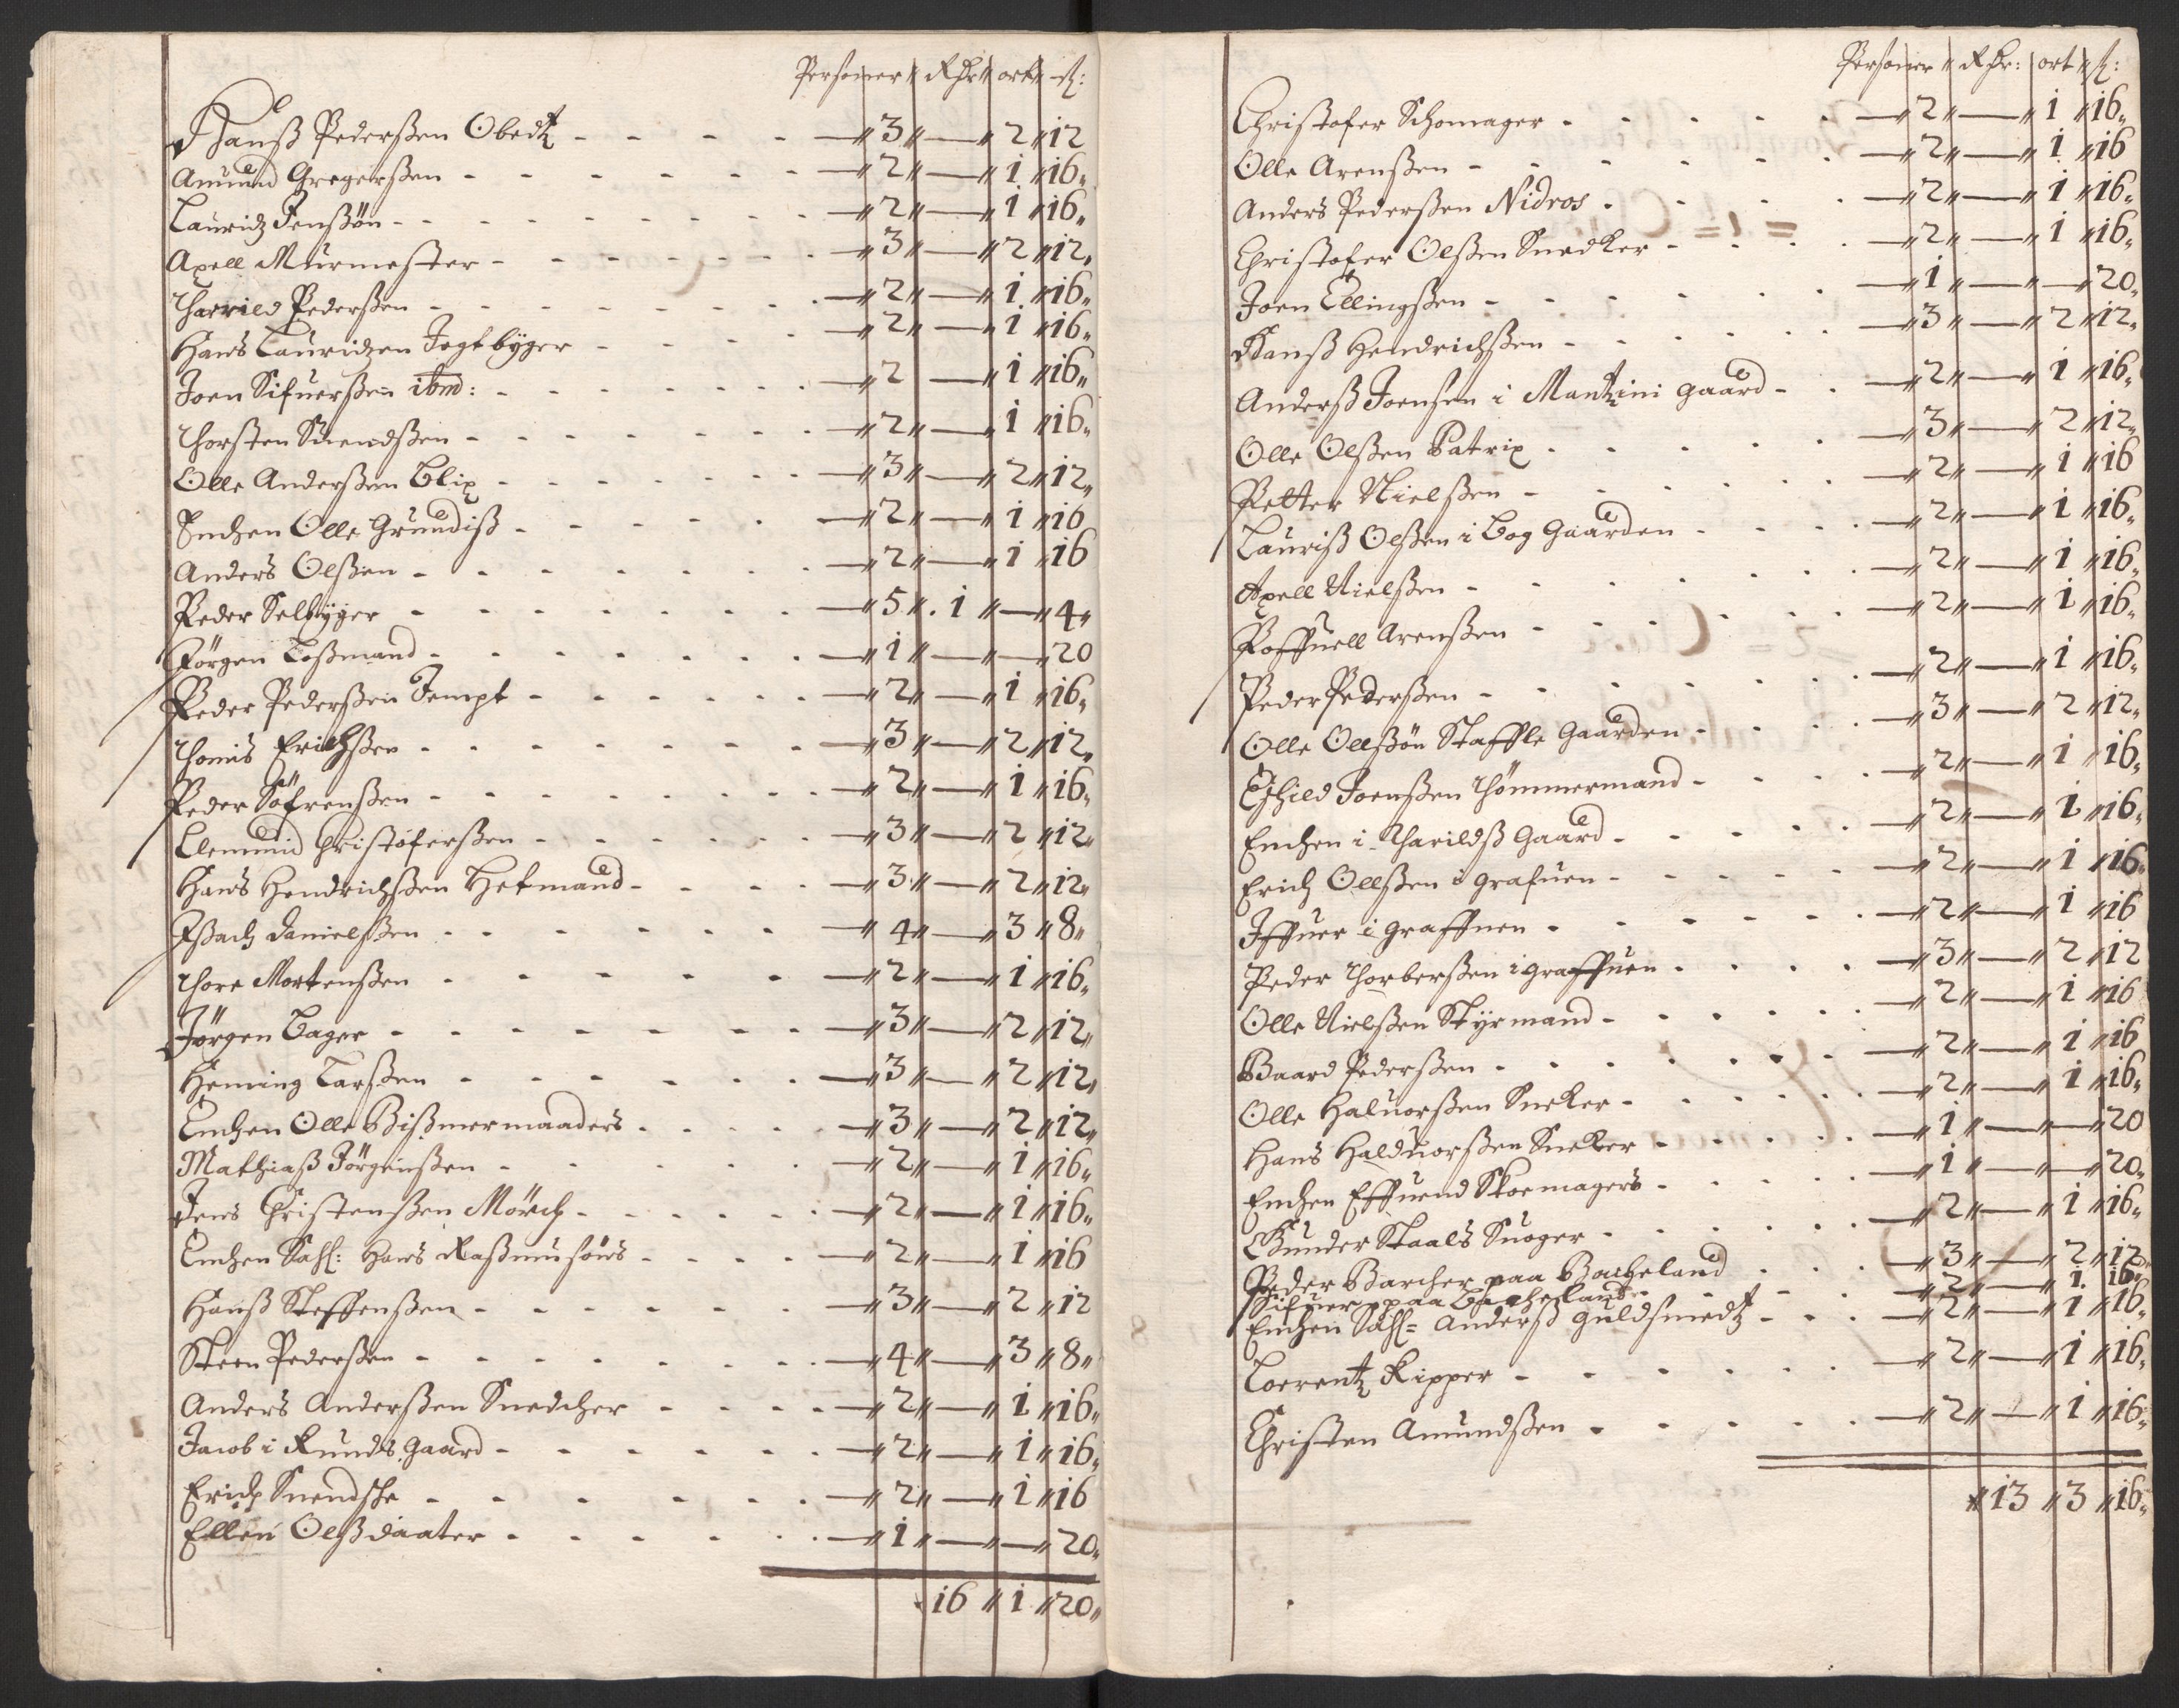 Personer Rdr ort ß:
Hanß Pederßen Obedtz - - - - 3 — 2 12
Amund Gregerßen - - - - 2 — 1 16
Lauridz Jenßøn - - - - 2 — 1 16
Axell Murmester - - - - 3 — 2 12
Tharield Pederßen - - - - 2 — 1 16
Hans Lauridzen Jegtbyger - - - - 2 — 1 16
Joen Sifuerßen ibm: - - - - 2 — 1 16
Thorsten Suendßen - - - - 2 — 1 16
Olle Anderßen Blix - - - - 3 — 2 12
Enchen Olle Grundiß - - - - 2 — 1 16
Anders Olßen - - - - 2 — 1 16
Peder Selbyger - - - - 5 1 — 4
Jørgen Loßmand - - - - 1 — — 20
Peder Pederßen Jempt - - - - 2 — 1 16
Thomis Erichßen - - - - 3 — 2 12
Peder Søfrenßen - - - - 2 — 1 16
Clemmid Christoferßen - - - - 3 — 2 12
Hans Hendrichßen Hekmand - - - - 3 — 2 12
Ißach Danielßen - - - - 4 — 3 8
Thore Mortenßen - - - - 2 — 1 16
Jørgen Bager - - - - 3 — 2 12
Heming Larßen - - - - 3 — 2 12
Enchen Olle Bißmermaaders - - - - 3 — 2 12
Mathiaß Jørgenßen - - - - 2 — 1 16
Jens Christenßen Mørch - - - - 2 — 1 16
Enchen Sahl: Hans Raßmusøns - - - - 2 — 1 16
Hanß Steffenßen - - - - 3 — 2 12
Steen Pederßen - - - - 4 — 3 8
Anders Anderßen Snedcher - - - - 2 — 1 16
Jacob i Runds Gaard - - - - 2 — 1 16
Erich Suendske - - - - 2 — 1 16
Ellen Olßdaater - - - - 1 — — 20
16 1 20
Personer Rdr: ort ß:
Christofer Schomager - - - - 2 — 1 16
Olle Arenßen - - - - 2 — 1 16
Anders Pederßen Nidros - - - - 2 — 1 16
Christofer Olßen Snedker - - - - 2 — 1 16
Joen Ellingßen - - - - 1 — — 20
Hanß Hendrichßen - - - - 3 — 2 12
Anderß Joensen i Mantzini gaard - - 2 — 1 16
Olle Olßen Patrix - - - - 3 — 2 12
Petter Nielßen - - - - 2 — 1 16
Lauriß Olßen i Bog Gaarden - - - - 2 — 1 16
Axell Nielßen - - - - 2 — 1 16
Poffuell Arenßen - - - - 2 — 1 16
Peder Pederßen - - - - 2 — 1 16
Olle Ollßøn Staffle Gaarden - - - - 3 — 2 12
Eschild Joenßen Thømmermand - - - - 2 — 1 16
Enchen i Tharildß Gaard - - - - 2 — 1 16
Erich Ollßen i grafuen - - - - 2 — 1 16
Iffuer i graffuen - - - - 2 — 1 16
Peder Thorberßen i graffuen - - - - 3 — 2 12
Olle Nielßen Styrmand - - - - 2 — 1 16
Baard Pederßen - - - - 2 — 1 16
Olle Haluorßen Sneker - - - - 2 — 1 16
Hans Halduorßen Sneker - - - - 1 — — 20
Enchen Effuend Skoemagers - - - - 1 — — 20
Gunder Staals Suoger - - - - 2 — 1 16
Peder Barcher paa Bacheland - - - 3 — 2 12
Sifuer paa Bacheland - - - 2 — 1 16
Enchen Sahl= Anderß guldsmedtz - - - 2 — 1 16
Loerentz Ripper - - - - 2 — 1 16
Christen Amundßen - - - - 2 — 1 16
13 3 16